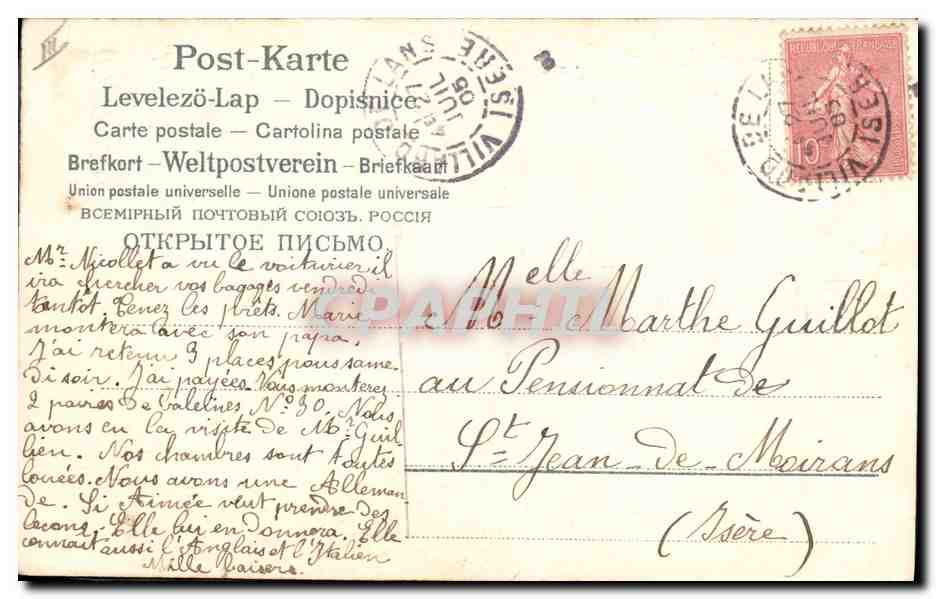 Post-Karte
Levelezö-Lap – Dopisnice
Carte postale – Cartolina postale
Brefkort – Weltpostverein – Briefkaart
Union postale universelle – Unione postale universale
ВСЕМІРНЫЙ ПОЧТОВЫЙ СОЮЗЪ. РОССІЯ
ОТКРЫТОЕ ПИСЬМО.
Mr. Nicollet a vu le voiturier il
ira chercher vos bagages vendredi
tantôt. Tenez les prêts. Marie
montera avec son papa.
J'ai retenu 3 places pour same-
di soir. J'ai payées. Vous monterez
2 paires de baleines No 30. Nous
avons eu la visite de Mr Guil
lien. Nos chambres sont toutes
louées. Nous avons une Alleman
de. Si Aimée veut prendre des
leçons, Elle lui en donnera. Elle
connait aussi l'Anglais et l'Italien
Mille baisers.
Melle Marthe Guillot
au Pensionnat de
St Jean-de-Moirans
(Isère)
RÉPUBLIQUE FRANÇAISE
10
VILLARD DE LANS ISÈRE
JUIL 05
VILLARD DE LANS ISÈRE
05
CPAPHIL